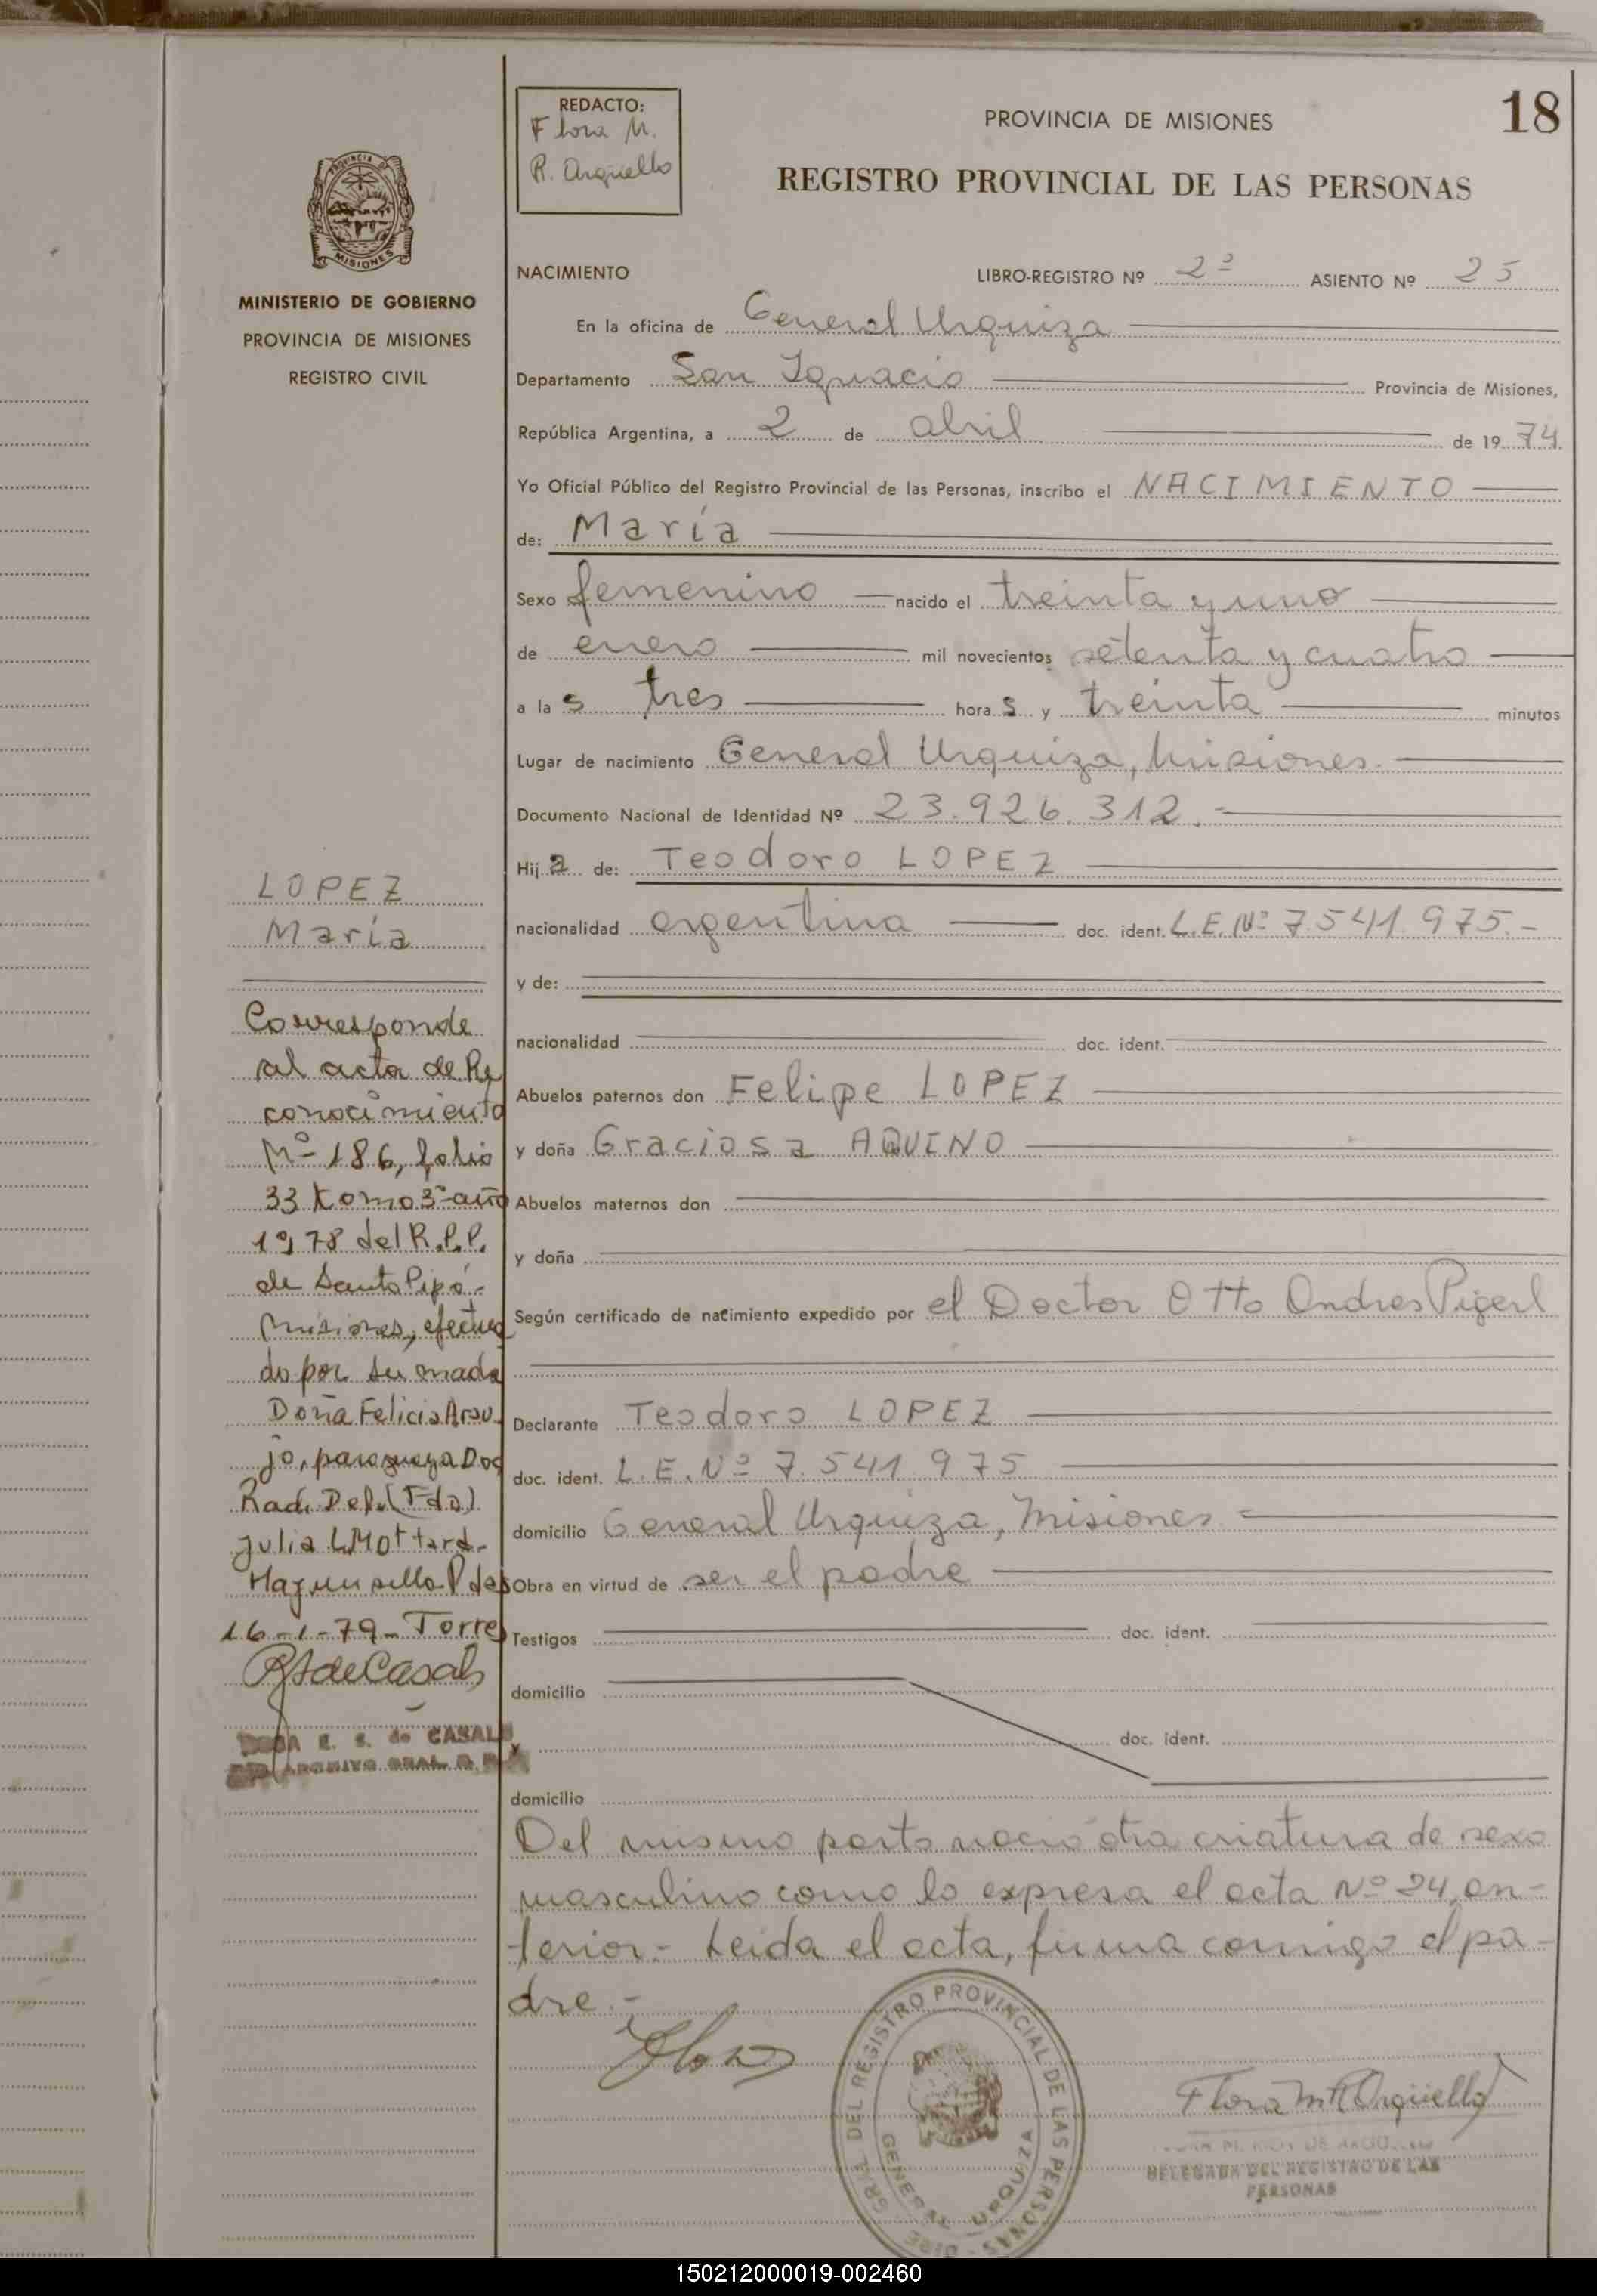 REDACTO:
Flora M.
R. Arguello
PROVINCIA DE MISIONES
18
REGISTRO PROVINCIAL DE LAS PERSONAS
PROVINCIA DE
MISIONES
MINISTERIO DE GOBIERNO
PROVINCIA DE MISIONES
REGISTRO CIVIL
NACIMIENTO LIBRO-REGISTRO Nº 2º ASIENTO Nº 25
En la oficina de General Urquiza
Departamento San Ignacio Provincia de Misiones,
República Argentina, a 2 de abril de 1974
Yo Oficial Público del Registro Provincial de las Personas, inscribo el NACIMIENTO
de: María
Sexo femenino nacido el treinta y uno
de enero mil novecientos setenta y cuatro
a las tres horas y treinta minutos
Lugar de nacimiento General Urquiza, Misiones.
Documento Nacional de Identidad Nº 23.926.312.-
Hija de: Teodoro LOPEZ
nacionalidad argentina doc. ident. L.E. Nº 7.541.975.-
y de:
nacionalidad doc. ident.
Abuelos paternos don Felipe LOPEZ
y doña Graciosa AQUINO
Abuelos maternos don
y doña
Según certificado de nacimiento expedido por el Doctor Otto Andres Pigerl
Declarante Teodoro LOPEZ
doc. ident. L.E. Nº 7.541.975
domicilio General Urquiza, Misiones
Obra en virtud de ser el padre
Testigos doc. ident.
domicilio
doc. ident.
domicilio
Del mismo parto nació otra criatura de sexo
masculino como lo expresa el acta Nº 24, an-
terior.- Leida el acta, firma conmigo el pa-
dre.-
LOPEZ
María
Corresponde
al acta de Re
conocimiento
Nº 186, folio
33 tomo 3º año
1978 del R.P.P.
de Santo Pipó-
Misiones, efectua
do por su madre
Doña Felicia Arau
jo, paraguaya Doc
Rad. Del. (Fdo)
Julia L. Mottard.
Hay un sello
16-1-79- Torres
de Casals
E. S. de CASALS
ARCHIVO GRAL. R. P.
DEL REGISTRO PROVINCIAL DE LAS PERSONAS
GENERAL URQUIZA
Flora M R Argüello
DELEGADA DEL REGISTRO DE LAS
PERSONAS
150212000019-002460